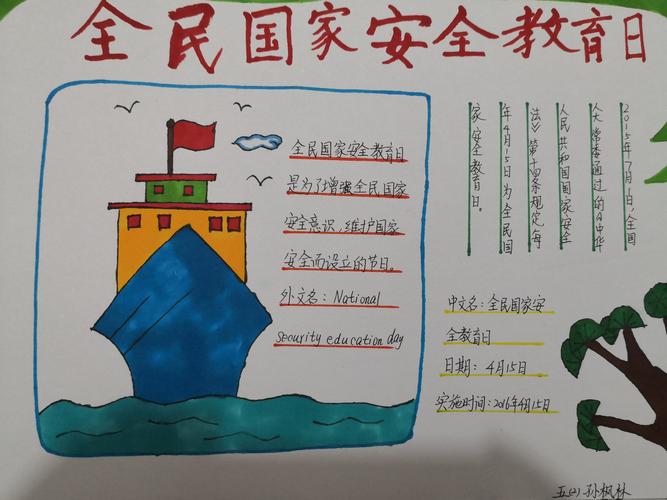 全民国家安全教育日
全民国家安全教育日
是为了增强全民国家
安全意识，维护国家
安全而设立的节日。
外文名：National
security education day
2015年7月1日，全国
人大常委通过的《中华
人民共和国国家安全
法》第十四条规定每
年4月15日为全民国
家安全教育日。
中文名：全民国家安
全教育日
日期：4月15日
实施时间：2016年4月15日
五(2) 孙枫林